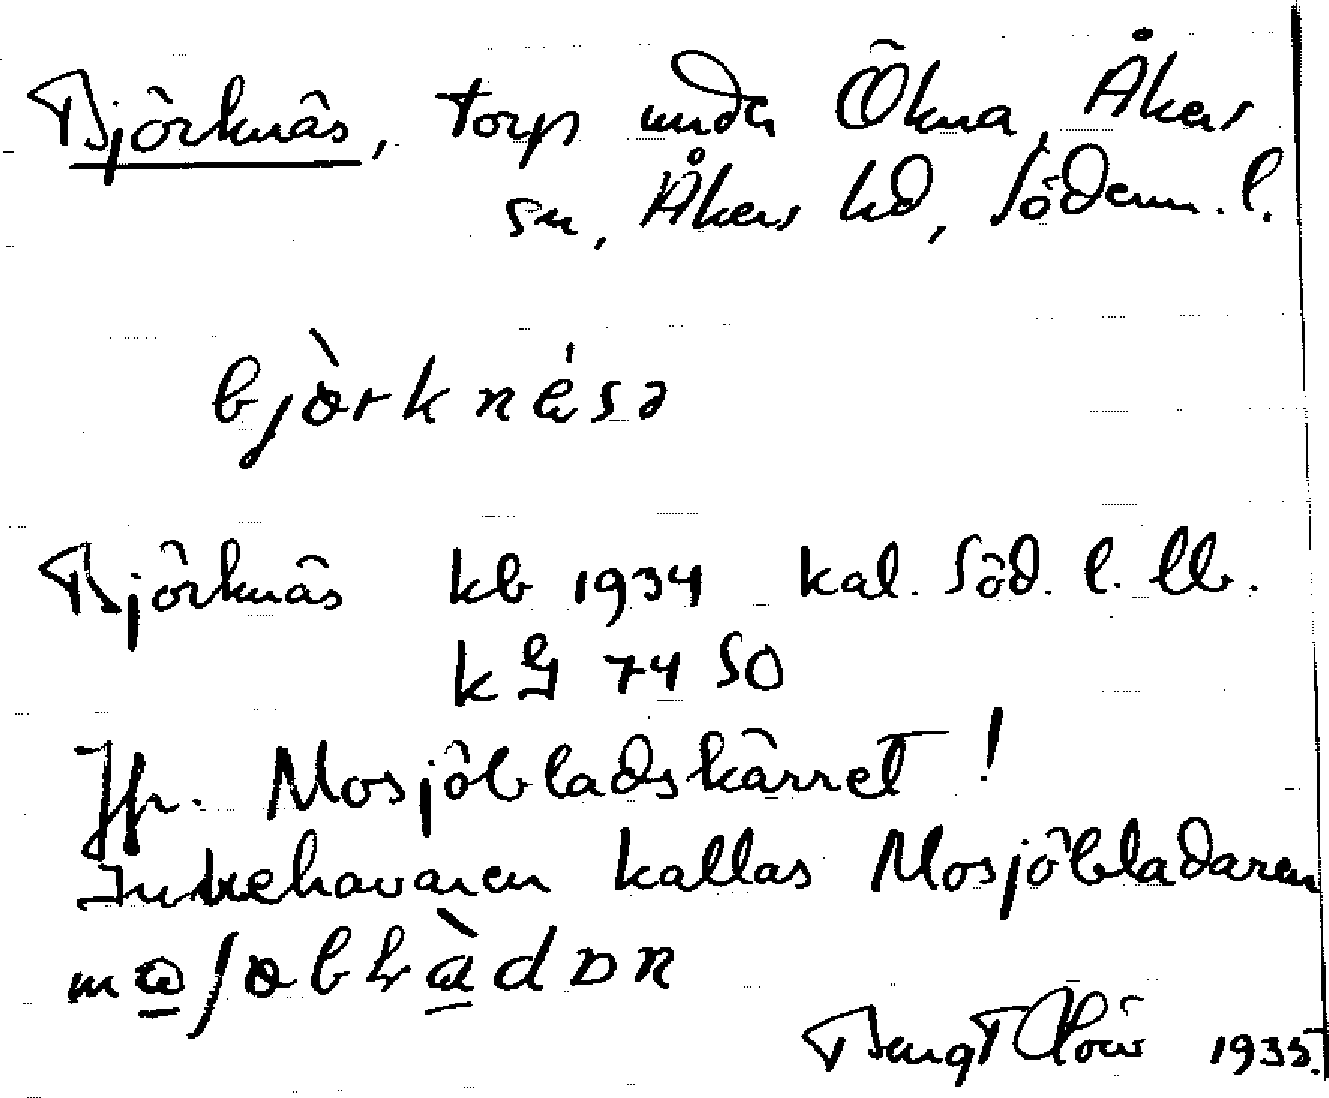 Björknäs, torp under Ökna, Åkers
sn, Åkers hd, Söderm. l.
bjòrknésə
Björknäs kb 1934 kal. Söd. l. lb.
k G 74 SO
Jfr. Mosjöbladskärret!
Innehavaren kallas Mosjöbladaren
Bengt 1935.